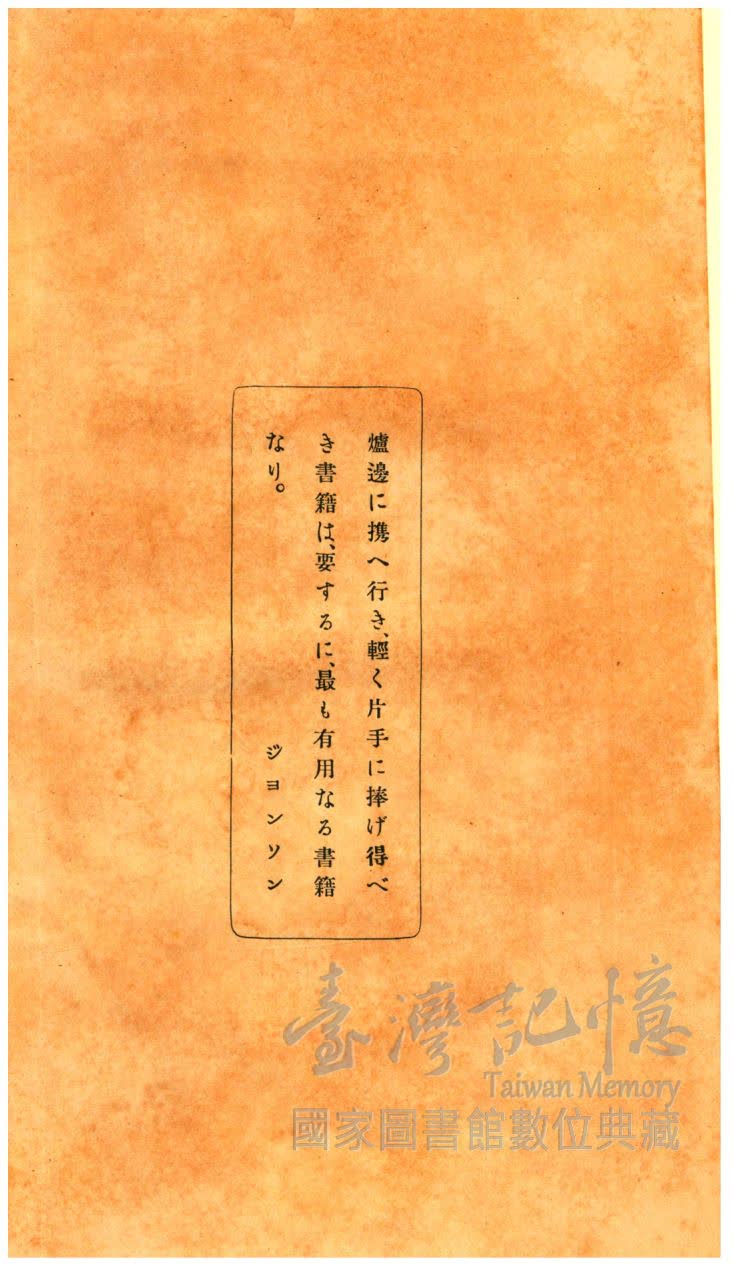 爐邊に携へ行き、輕く片手に捧げ得べ
き書籍は、要するに、最も有用なる書籍
なり。
ジヨンソン
臺灣記憶
Taiwan Memory
國家圖書館數位典藏